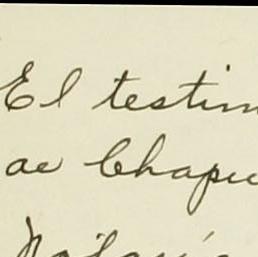 El testim
de Chapu